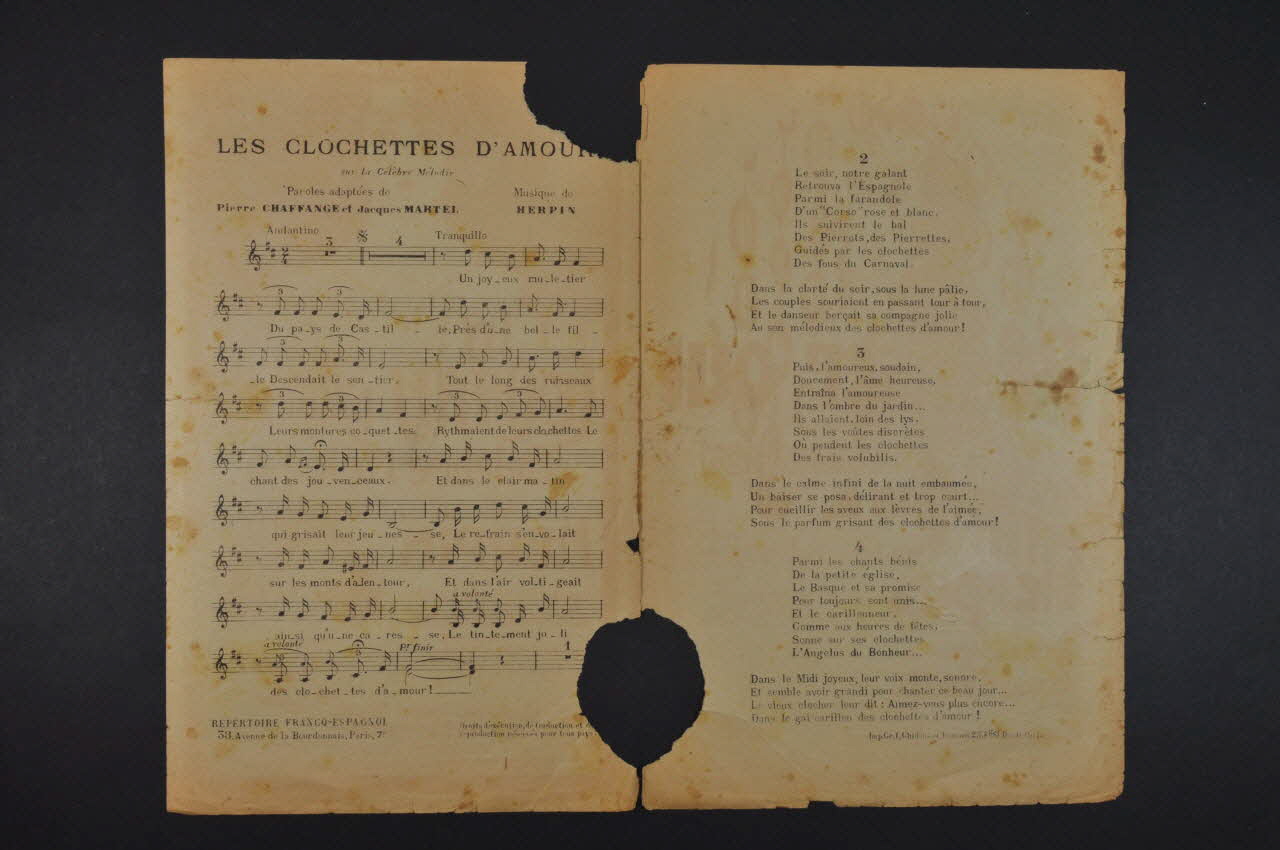 LES CLOCHETTES D'AMOUR
sur la Célèbre Mélodie
Paroles adaptées de
Pierre CHAFFANGE et Jacques MARTEL
Musique de
HERPIN
Andantino
3
4
Tranquillo
Un joy_eux mu_le_tier
Du pa_ys de Cas_til _ le, Près d'u_ne bel_le fil _
_le Descendait le sen_tier. Tout le long des ruisseaux
Leurs montures co_quet_tes Rythmaient de leurs clochettes Le
chant des jou_ven_ceaux. Et dans le clair ma_tin
qui grisait leur jeu_nes _ se, Le re_frain s'en_vo_lait
sur les monts d'a_len_tour, Et dans l'air vol_ti_geait
à volonté
ain_si qu'u_ne ca_res _ se, Le tin_te_ment jo_li
à volonté
Pr finir
1
des clo_chet_tes d'a_mour!
REPERTOIRE FRANCO-ESPAGNOL
38, Avenue de la Bourdonnais, Paris, 7e
Droits d'exécution, de traduction et
reproduction réservés pour tous pays
2
Le soir, notre galant
Retrouva l'Espagnole
Parmi la farandole
D'un "Corso" rose et blanc.
Ils suivirent le bal
Des Pierrots, des Pierrettes,
Guidés par les clochettes
Des fous du Carnaval.
Dans la clarté du soir, sous la lune pâlie,
Les couples souriaient en passant tour à tour,
Et le danseur berçait sa compagne jolie
Au son mélodieux des clochettes d'amour!
3
Puis, l'amoureux, soudain,
Doucement, l'âme heureuse,
Entraîna l'amoureuse
Dans l'ombre du jardin...
Ils allaient, loin des lys,
Sous les voûtes discrètes
Où pendent les clochettes
Des frais volubilis.
Dans le calme infini de la nuit embaumée,
Un baiser se posa, délirant et trop court...
Pour cueillir les aveux aux lèvres de l'aimée,
Sous le parfum grisant des clochettes d'amour!
4
Parmi les chants bénis
De la petite église,
Le Basque et sa promise
Pour toujours sont unis...
Et le carillonneur,
Comme aux heures de fêtes,
Sonne sur ses clochettes
L'Angelus du Bonheur...
Dans le Midi joyeux, leur voix monte, sonore,
Et semble avoir grandi pour chanter ce beau jour...
Le vieux clocher leur dit: Aimez-vous plus encore...
Dans le gai carillon des clochettes d'amour!